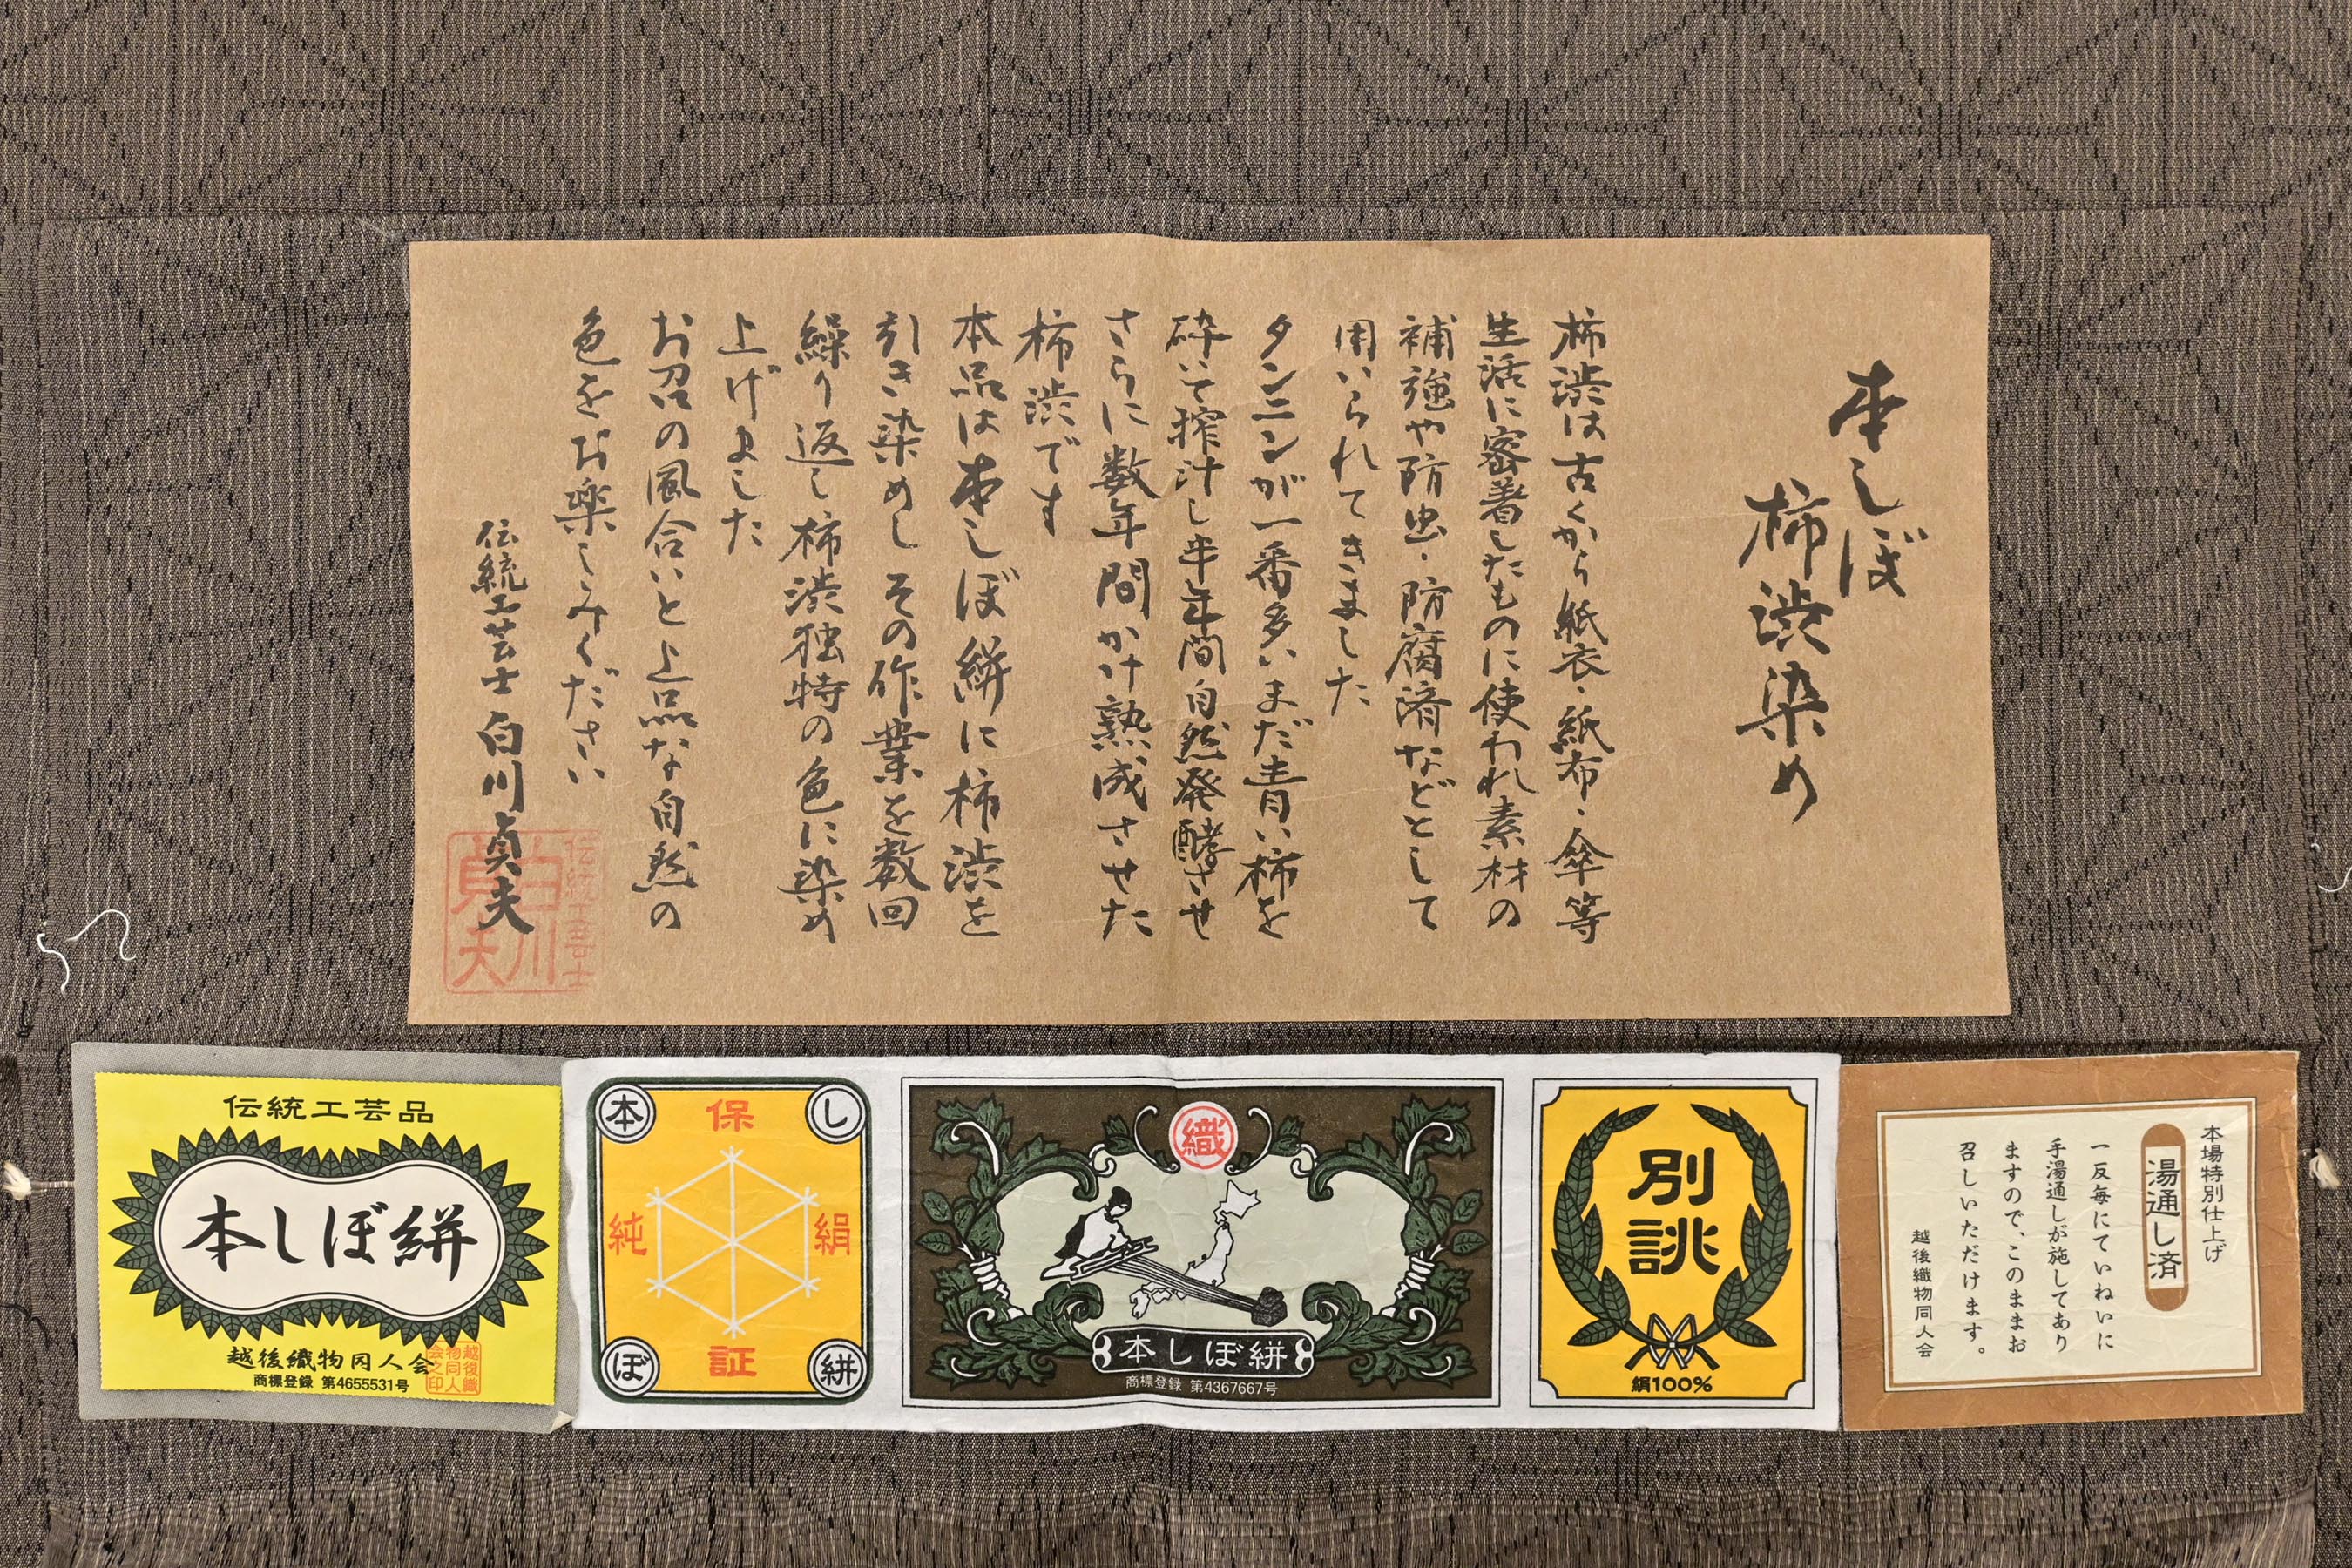 本しぼ
柿渋染め
柿渋は古くから紙衣・紙布・傘等
生活に密着したものに使われ素材の
補強や防虫・防腐済などとして
用いられてきました
タンニンが一番多いまだ青い柿を
砕いて搾汁し半年間自然発酵させ
さらに数年間かけ熟成させた
柿渋です
本品は本しぼ絣に柿渋を
引き染めし その作業を数回
繰り返し柿渋独特の色に染め
上げました
お召の風合いと上品な自然の
色をお楽しみください
伝統工芸士 白川貞夫
伝統工芸士
白川
貞夫
伝統工芸品
本しぼ絣
越後織物同人会
商標登録 第4655531号
越後織
物同人
会之印
本 保 し
純 絹
ぼ 証 絣
織
本しぼ絣
商標登録 第4367667号
別
誂
絹100%
本場特別仕上げ
湯通し済
一反毎にていねいに
手湯通しが施してあり
ますので、このままお
召しいただけます。
越後織物同人会